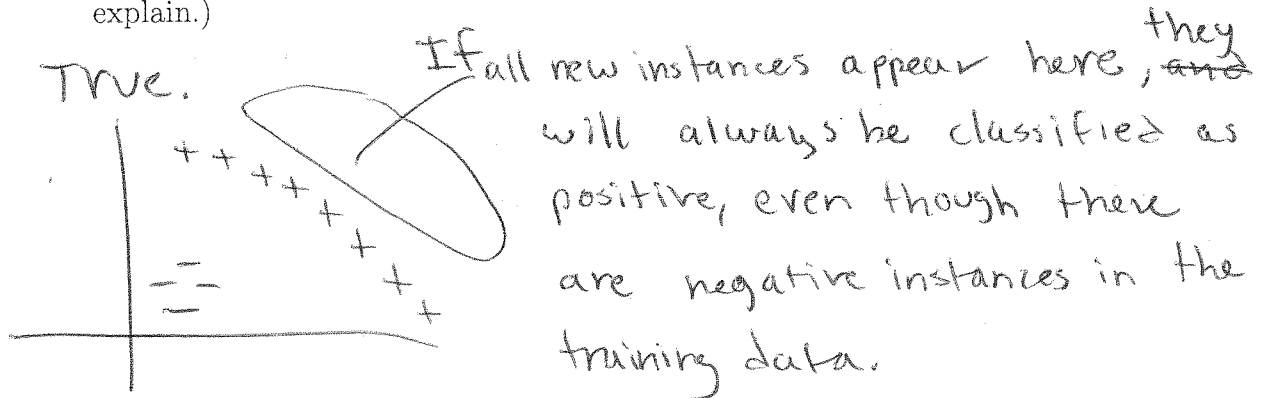 explain.)
True.
If all new instances appear here, they and
will always be classified as
positive, even though there
are negative instances in the
training data.